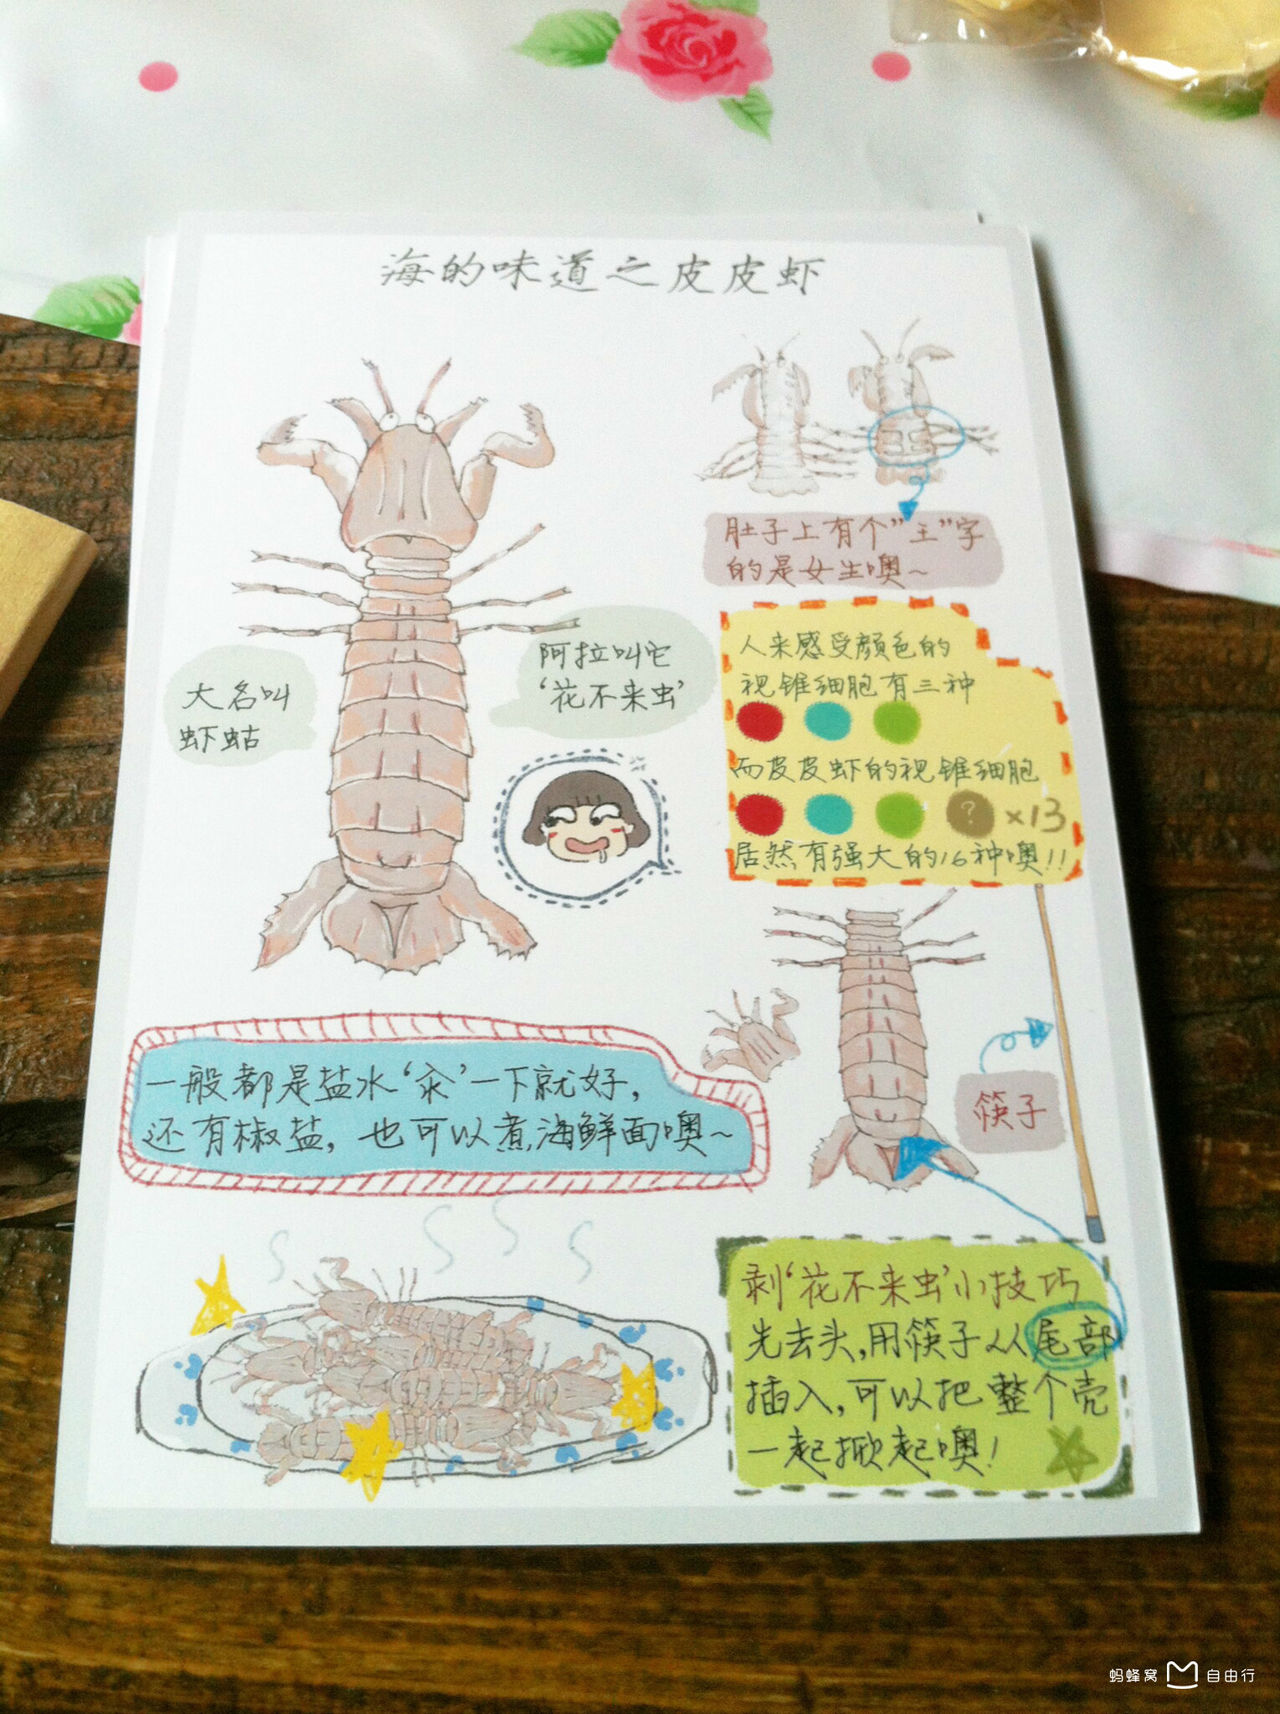 海的味道之皮皮虾
肚子上有个”王”字
的是女生噢~
阿拉叫它
‘花不来虫’
大名叫
虾蛄
人来感受颜色的
视锥细胞有三种
而皮皮虾的视锥细胞
? ×13
居然有强大的16种噢!!
筷子
一般都是盐水‘汆’一下就好,
还有椒盐,也可以煮海鲜面噢~
剥‘花不来虫’小技巧
先去头,用筷子从尾部
插入,可以把整个壳
一起掀起噢!
蚂蜂窝 自由行